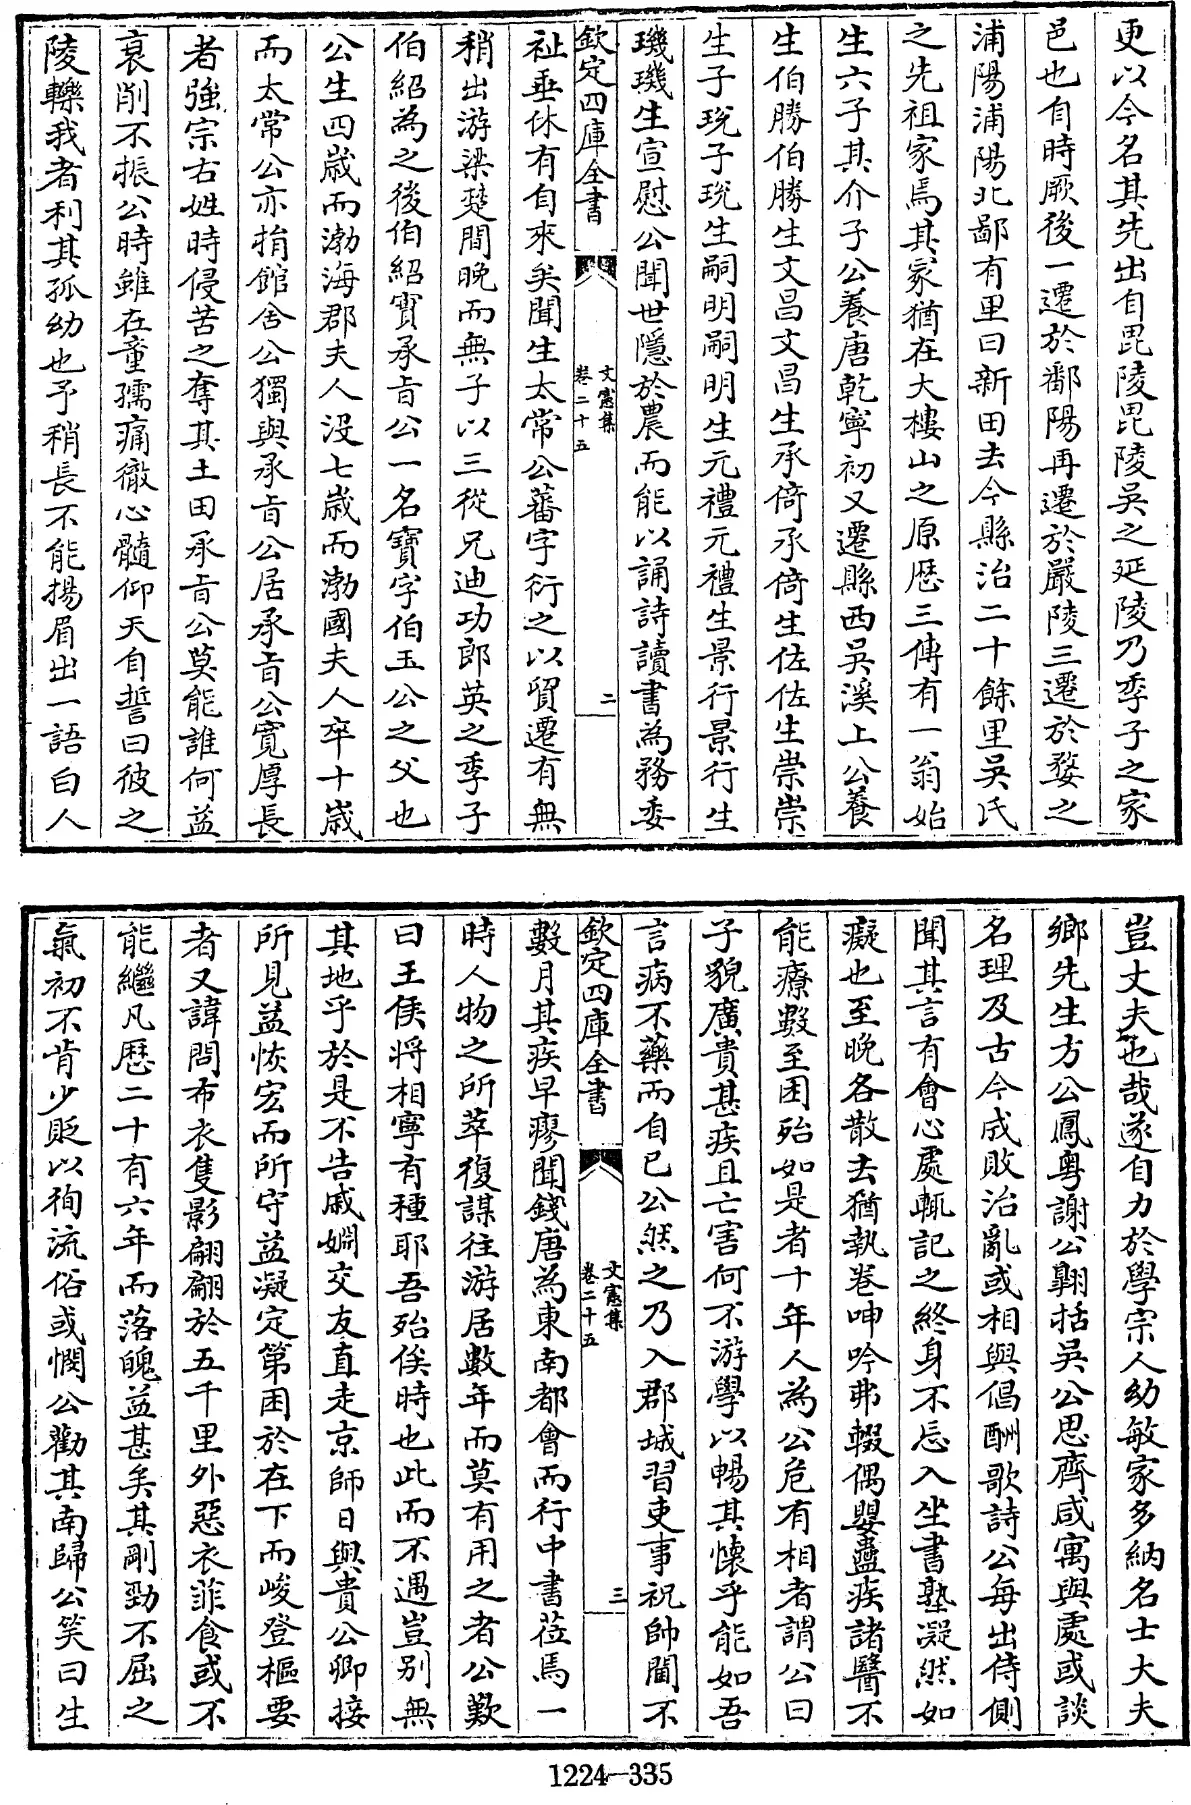 更以今名其先出自毘陵毘陵吳之延陵乃季子之家
邑也自時厥後一遷於鄱陽再遷於嚴陵三遷於婺之
浦陽浦陽北鄙有里曰新田去今縣治二十餘里吳氏
之先祖家焉其家猶在大樓山之原歷三傳有一翁始
生六子其介子公養唐乾寧初又遷縣西吳溪上公養
生伯勝伯勝生文昌文昌生承倚承倚生佐佐生崇崇
生子珖子珖生嗣明嗣明生元禮元禮生景行景行生
璣璣生宣慰公聞世隱於農而能以誦詩讀書為務委
欽定四庫全書
文憲集
卷二十五
二
祉垂休有自來矣聞生太常公蕃字衍之以貿遷有無
稍出游梁楚間晚而無子以三從兄迪功郎英之季子
伯紹為之後伯紹實承旨公一名寶字伯玉公之父也
公生四歲而渤海郡夫人沒七歲而渤國夫人卒十歲
而太常公亦捐館舍公獨與承旨公居承旨公寬厚長
者強宗右姓時侵苦之奪其土田承旨公莫能誰何益
衰削不振公時雖在童孺痛徹心髓仰天自誓曰彼之
陵轢我者利其孤幼也予稍長不能揚眉出一語白人
豈丈夫也哉遂自力於學宗人幼敏家多納名士大夫
鄉先生方公鳳粵謝公翱括吳公思齊咸寓與處或談
名理及古今成敗治亂或相與倡酬歌詩公每出侍側
聞其言有會心處輒記之終身不忘入坐書塾凝然如
癡也至晚各散去猶執卷呻吟弗輟偶嬰蠱疾諸醫不
能療數至困殆如是者十年人為公危有相者謂公曰
子貌廣貴甚疾且亡害何不游學以暢其懷乎能如吾
言病不藥而自已公然之乃入郡城習吏事祝帥閫不
欽定四庫全書
文憲集
卷二十五
三
數月其疾早瘳聞錢唐為東南都會而行中書蒞焉一
時人物之所萃復謀往游居數年而莫有用之者公歎
曰王侯將相寧有種耶吾殆俟時也此而不遇豈別無
其地乎於是不告戚姻交友直走京師日與貴公卿接
所見益恢宏而所守益凝定第困於在下而峻登樞要
者又諱問布衣隻影翩翩於五千里外惡衣菲食或不
能繼凡歷二十有六年而落魄益甚矣其剛勁不屈之
氣初不肯少貶以徇流俗或憫公勸其南歸公笑曰生
1224—335